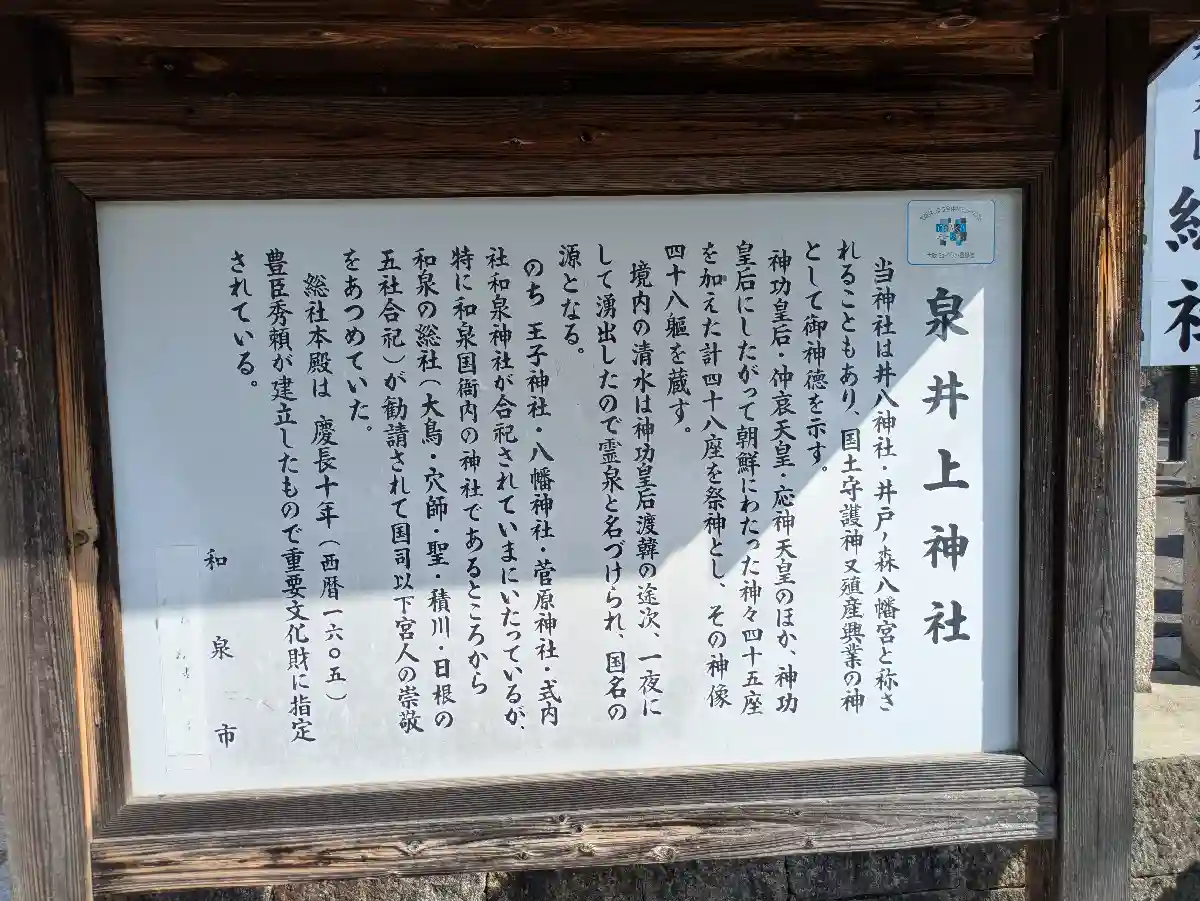 泉井上神社
当神社は井八神社・井戸ノ森八幡宮と称さ
れることもあり、国土守護神又殖産興業の神
として御神徳を示す。
神功皇后・仲哀天皇・応神天皇のほか、神功
皇后にしたがって朝鮮にわたった神々四十五座
を加えた計四十八座を祭神とし、その神像
四十八軀を蔵す。
境内の清水は神功皇后渡韓の途次、一夜に
して湧出したので霊泉と名づけられ、国名の
源となる。
のち 王子神社・八幡神社・菅原神社・式内
社和泉神社が合祀されていまにいたっているが、
特に和泉国衙内の神社であるところから
和泉の総社（大鳥・穴師・聖・積川・日根の
五社合祀）が勧請されて国司以下宮人の崇敬
をあつめていた。
総社本殿は 慶長十年（西暦一六〇五）
豊臣秀頼が建立したもので重要文化財に指定
されている。
和泉市
総社